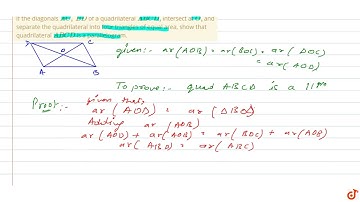 If the diagonals AC, BD of a quadrilateral ABCD, intersect at O, and
separate the quadrilateral into four triangles of equal area, show that
quadrilateral ABCD is a parallelogram.
C
O
A
B
given:- ar(AOB) = ar(BOC) = ar(DOC)
= ar(AOD)
To prove:- quad ABCD is a 11gm
Proof:- given that
ar(AOD) = ar(ΔBOC)
Adding ar(AOB)
ar(AOD) + ar(AOB) = ar(BOC) + ar(AOB)
ar(ABD) = ar(ABC)
doubtnut